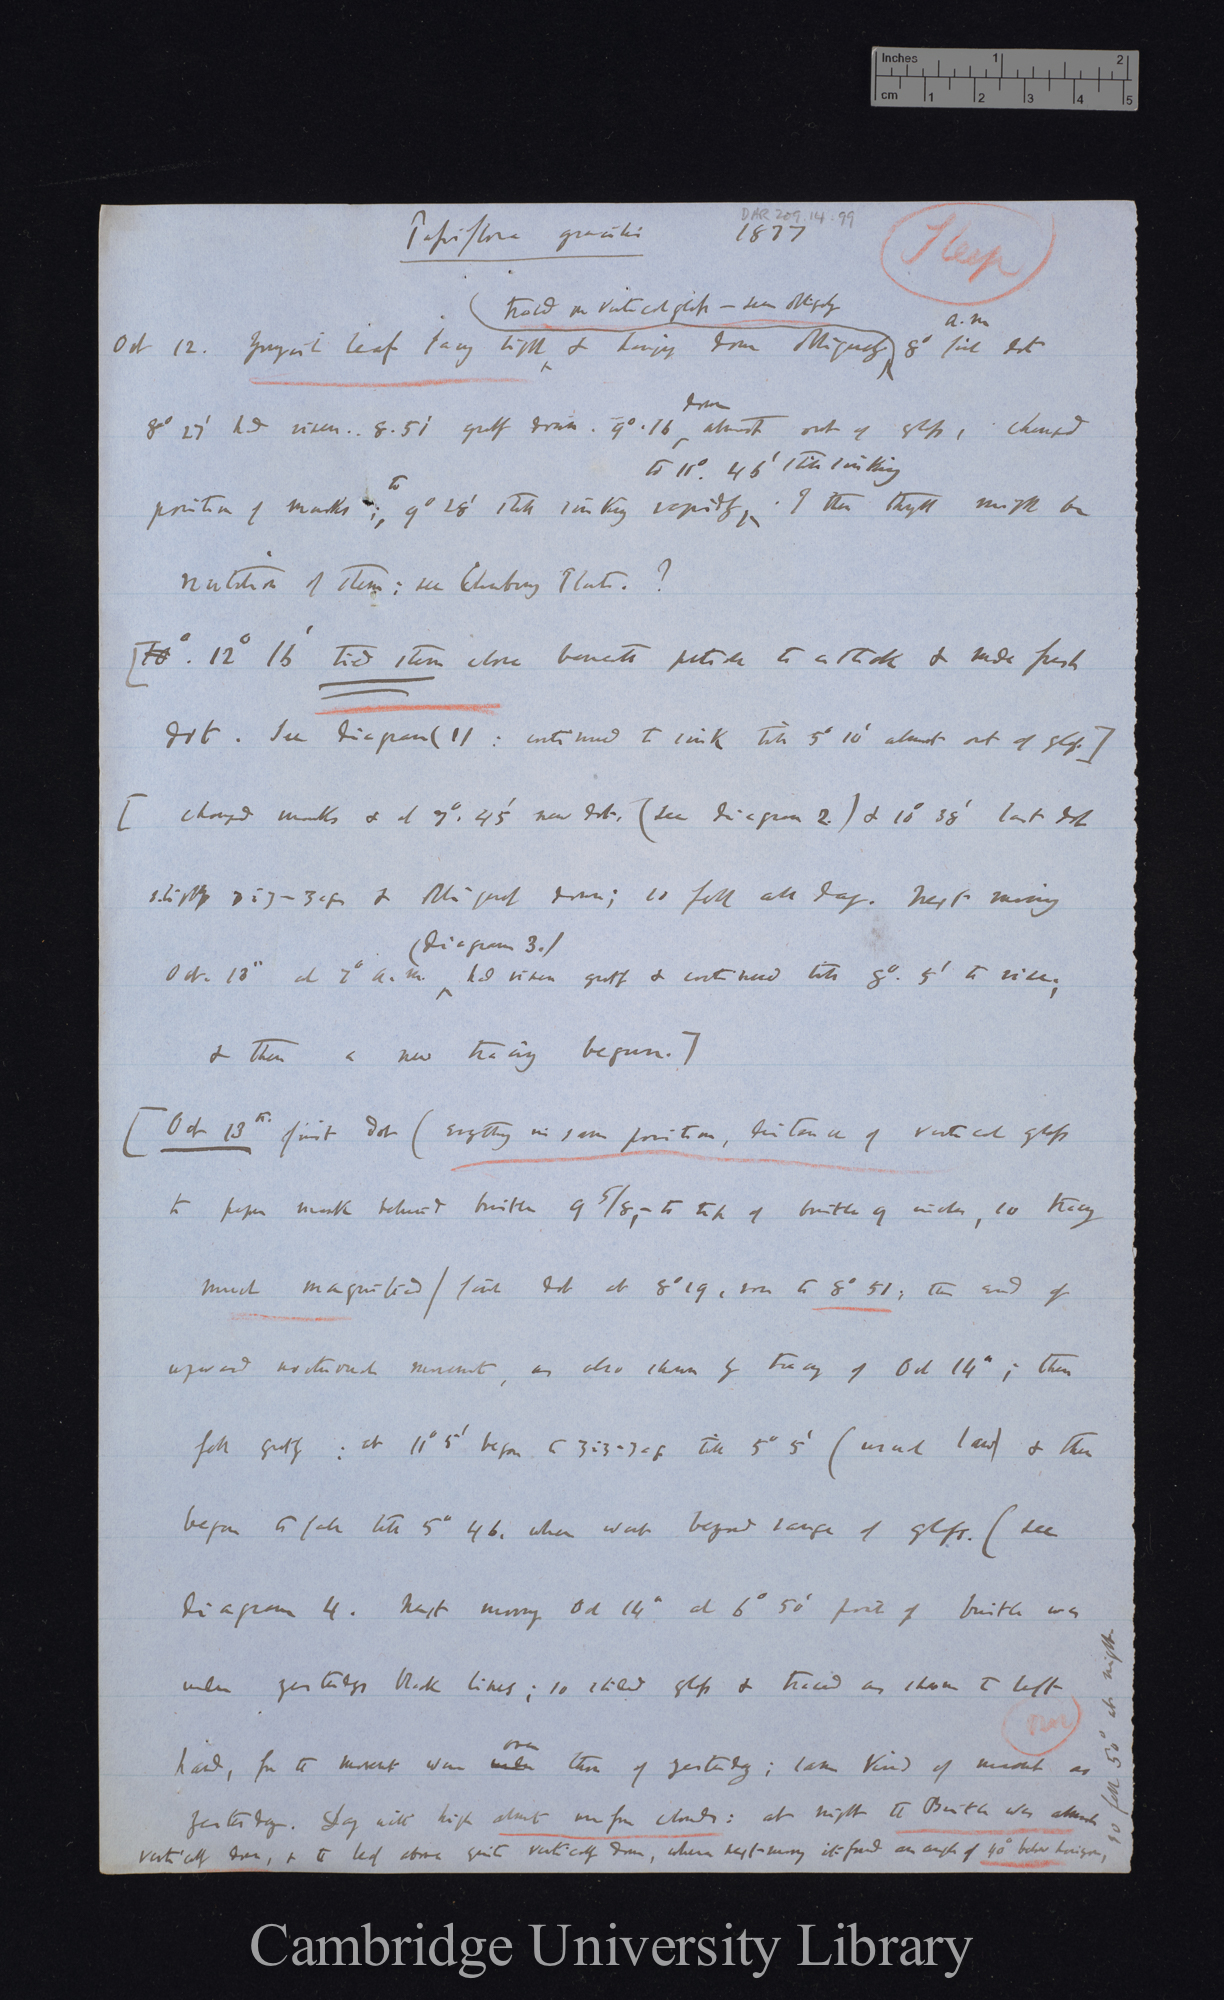 Inches 1 2
cm 1 2 3 4 5
DAR 209.14.99
Passiflora gracilis 1877
Sleep
(traced on vertical glass — seen obliquely
a.m
Oct 12. Youngest leaf facing light & hanging down obliquely) 8° first dot
down
8° 27' had risen.. 8.51' greatly down. 9°.16 almost out of glass, changed
to 11°. 46' still sinking
to
position of marks; 9° 28' still sinking rapidly. I then thought might be
nutation of stem; see Climbing Plants. ?
[10°. 12° 16' tied stem close beneath petiole to a stick & made fresh
dot. See diagram (1) : continued to sink till 5° 10' almost out of glass]
[ changed marks & at 7°. 45' new dot. (see diagram 2.) & 10° 38' last dot
slightly zig-zag & obliquely down; so fell all day. Next morning
(diagram 3.)
Oct. 13th at 7° a.m. had risen greatly & continued till 8°. 5' to rise;
& then a new tracing begun.]
[Oct 13th. first dot (everything in same position, distance of vertical glass
to paper mark behind bristle 9 5/8, — to tip of bristle 9 inches, so tracing
much magnified) first dot at 8° 19, rose to 8° 51; the end of
upward nocturnal movement, as also shown by tracing of Oct 14th; then
fell greatly : at 11° 5' began to zig-zag till 5° 5' (usual law) & then
began to fall till 5° 46. when went beyond range of glass. (see
diagram 4. Next morning Oct 14th at 6° 50' point of bristle was
under yesterdays black lines; so shifted glass & traced as shown to left
over
hand, for the movement were under those of yesterday; same kind of movement as
yesterday. Day with high almost uniform clouds: at night the Bristle was almost
vertically down, & the leaf above quite vertically down, where next morning it formed an angle of 40° below horizon,
so fell 50° at night